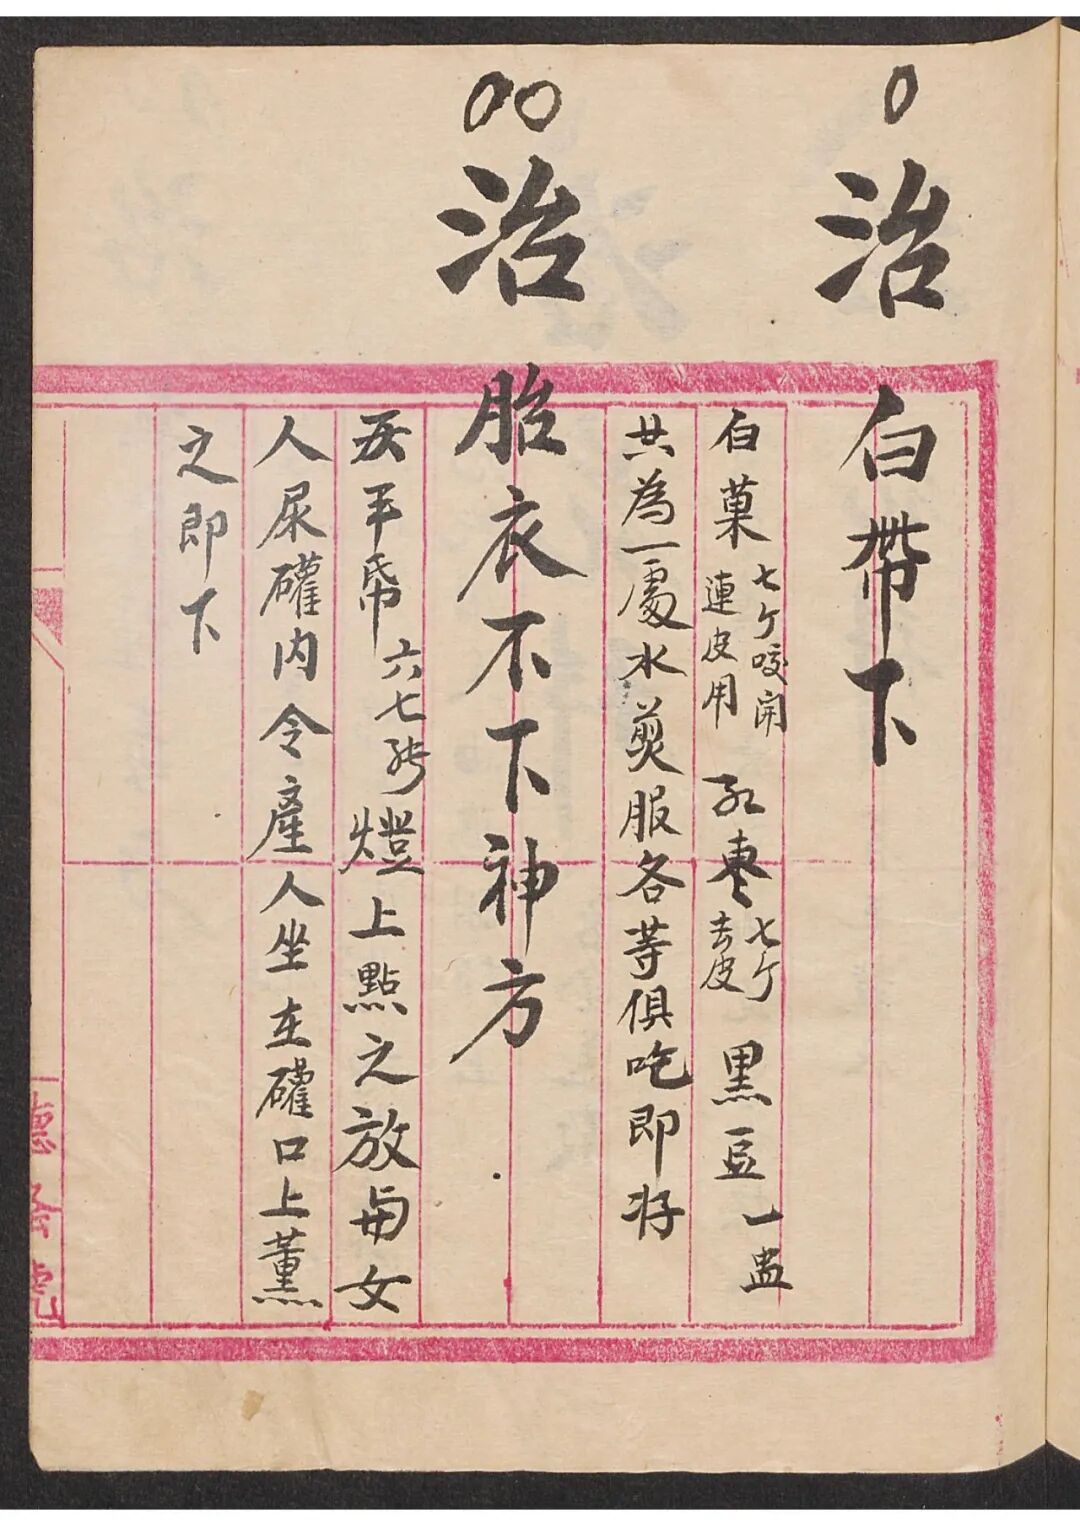 治白帶下
白菓七个咬開連皮用 紅棗七个去皮 黑豆一盅
共為一處水煎服各等俱吃即好
治胎衣不下神方
平帋六七張燈上點之放与女
人尿礶内令產人坐在礶口上薰
之即下
德
號